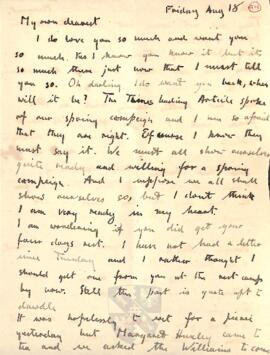 Friday Aug 18
My own dearest
I do love you so much and want you
so much. Yes I know you know it but it's
so much there just now that I must tell
you so. Oh darling I do want you back, when
will it be? The Times leading Article spoke
of our spring campaign and I am so afraid
that they are right. Of course I know they
must say it. We must all show ourselves
quite ready and willing for a spring
campaign. And I suppose we all shall
show ourselves so, but I don't think
I am very ready in my heart.
I am wondering if you did get your
four days rest. I have not had a letter
since Tuesday and I rather thought I
should get one from you at the rest camp
by now. Still the post is quite apt to
dawdle.
It was hopelessly wet for a picnic
yesterday but Margaret Huxley came to
tea and we asked the Williams to come